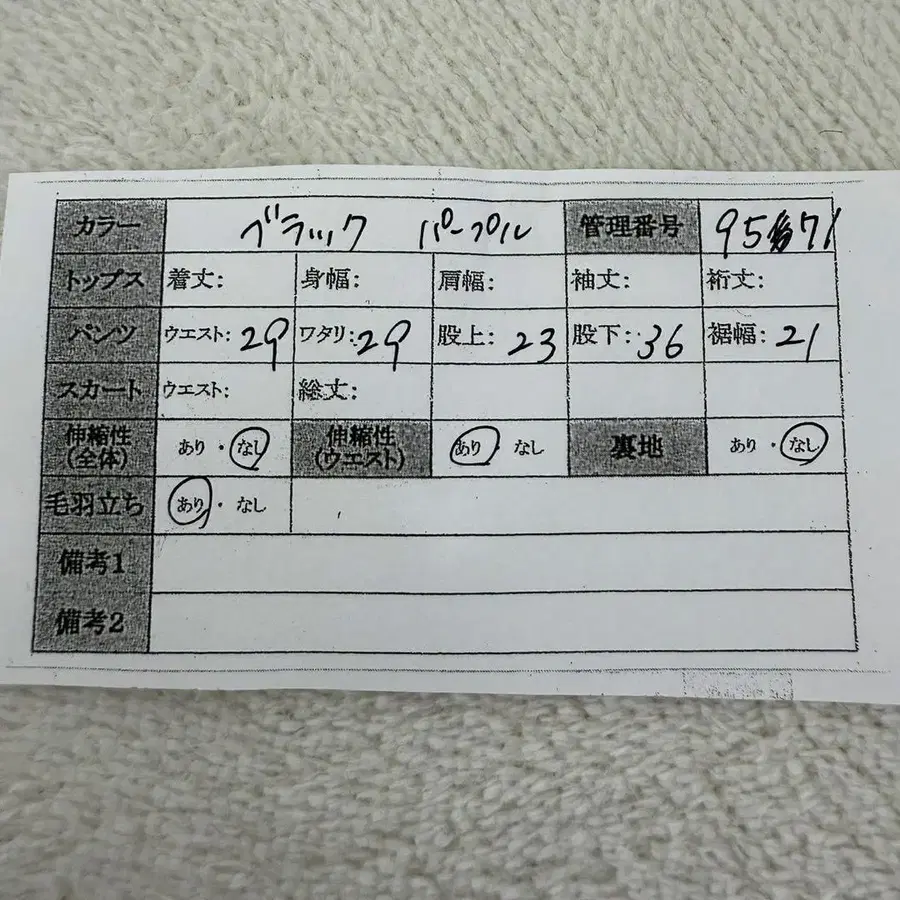 カラー ブラック パープル 管理番号 9571
トップス 着丈: 身幅: 肩幅: 袖丈: 裄丈:
パンツ ウエスト: 29 ワタリ: 29 股上: 23 股下: 36 裾幅: 21
スカート ウエスト: 総丈:
伸縮性 あり・なし 伸縮性 あり・なし 裏地 あり・なし
(全体) (ウエスト)
毛羽立ち あり・なし
備考1
備考2